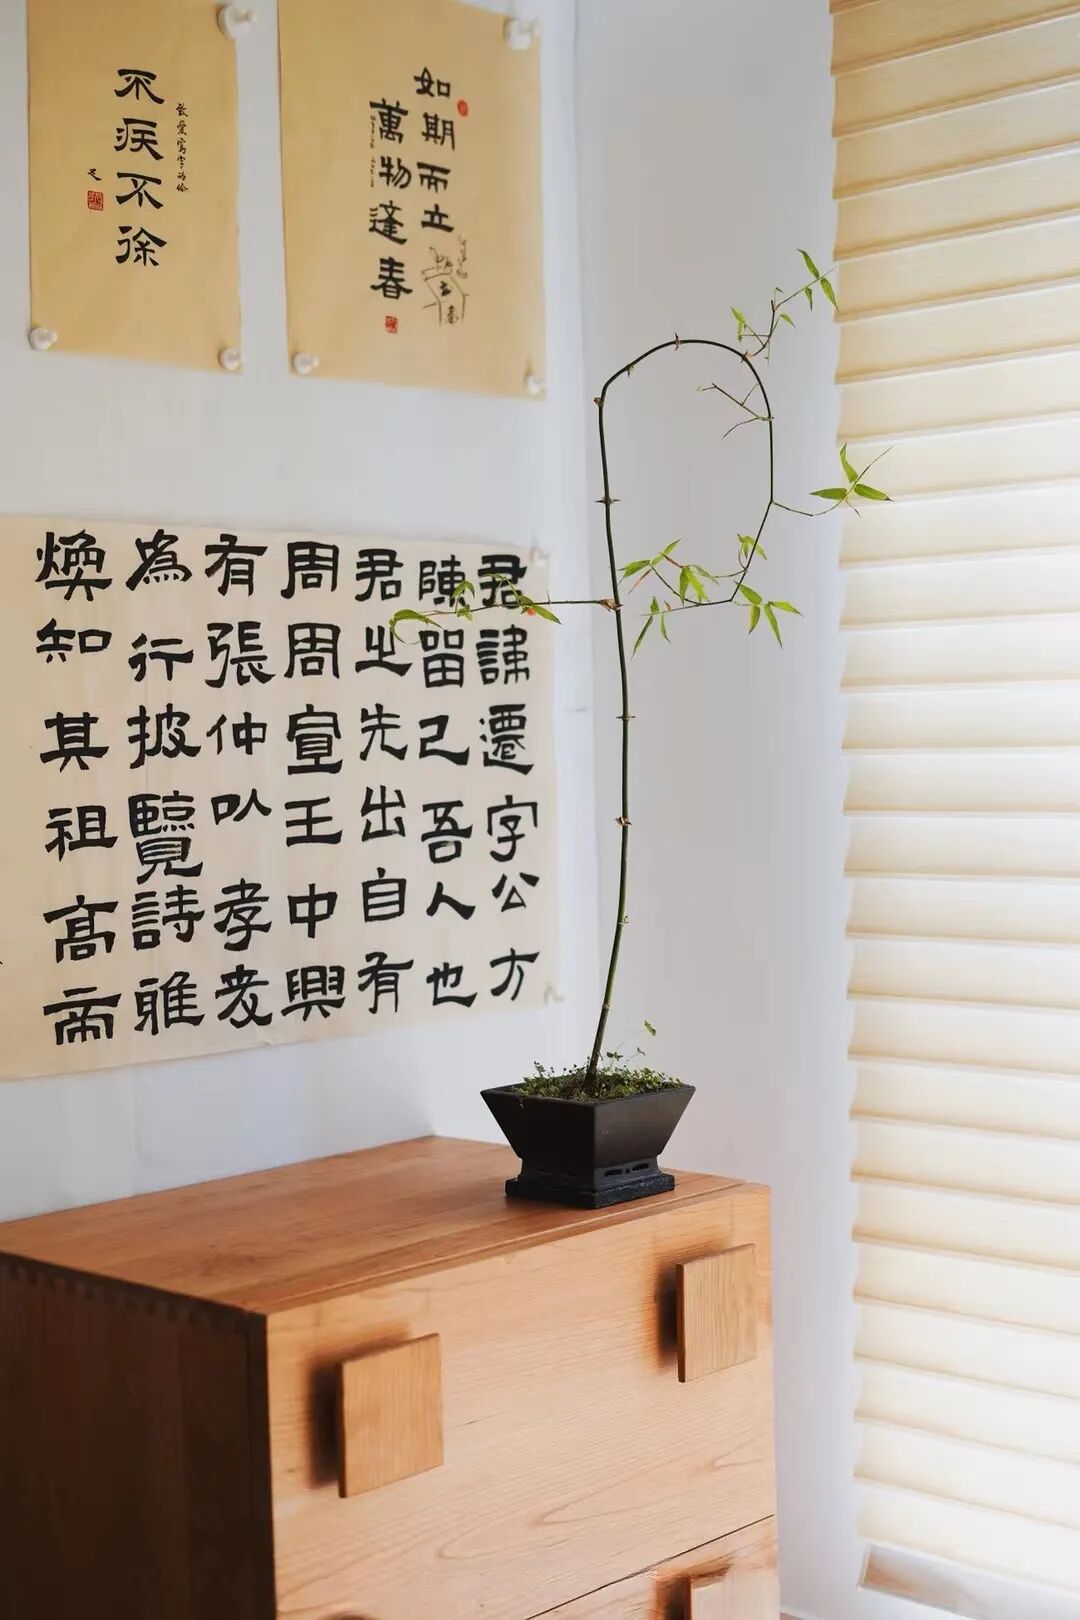 不疾不徐
致愛寫字的你
如期而立
萬物逢春
君諱遷字公方
陳留己吾人也
君之先出自有
周周宣王中興
有張仲以孝友
為行披覽詩雅
煥知其祖高帝